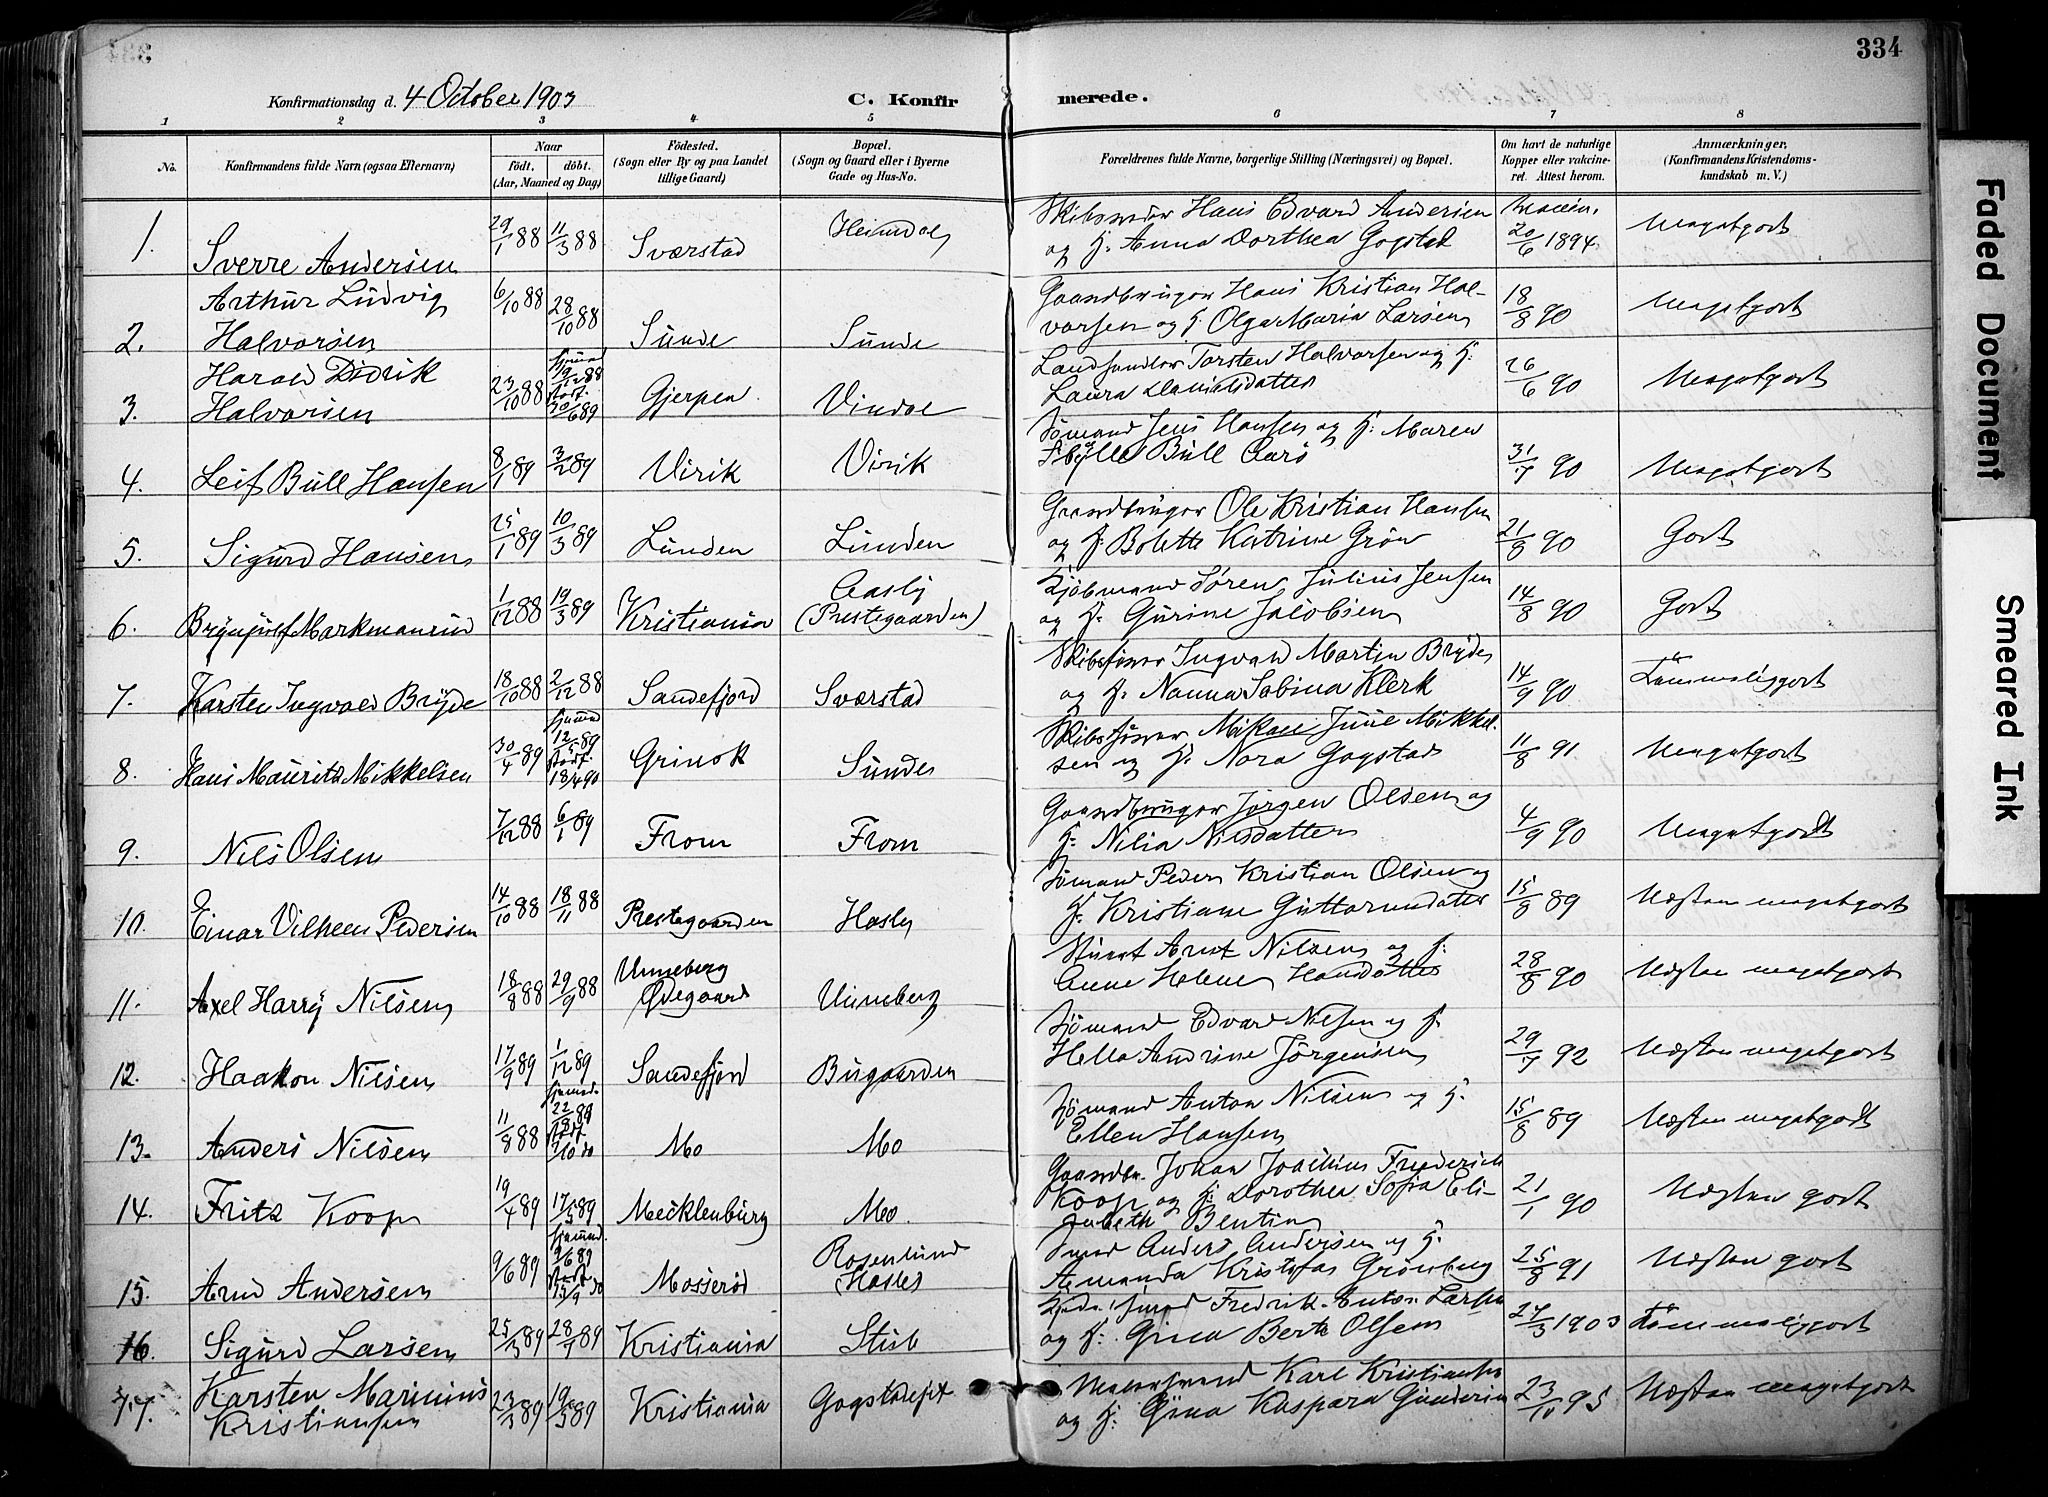 334
Konfirmationsdag d. 4 October 1903
C. Konfirmerede.
1 2 3 4 5 6 7 8
No.
Konfirmandens fulde Navn (ogsaa Efternavn)
Naar
födt. döbt.
(Aar, Maaned og Dag)
Födested.
(Sogn eller By og paa Landet
tillige Gaard)
Bopæl.
(Sogn og Gaard efter i Byerne
Gade og Hus-No.
Forældrenes fulde Navne, borgerlige Stilling (Næringsvei) og Bopæl.
Om havt de naturlige
Kopper eller vakcine-
ret. Attest herom.
Anmærkninger,
(Konfirmandens Kristendoms-
kundskab m. V.)
1. Sverre Andersen 29/1 88 11/3 88 Sværstad Heimdal
Skibsreder Hans Edvard Andersen
og H. Anna Dorthea Gogstad
20/6 1894 Megetgodt
2. Arthur Ludvig
Halvorsen 6/10 88 28/10 88 Sunde Sunde
Gaardbruger Hans Kristian Hal-
vorsen og H. Olga Maria Larsen
18/8 90 Megetgodt
3. Harald Didrik
Halvorsen 23/10 88 Gjerpen Vindal
Landhandler Torsten Halvorsen og H.
Laura Danielsdatter
26/6 90 Megetgodt
4. Leif Bull Hansen 8/1 89 3/2 89 Virik Virik
Sömand Jens Hansen og H. Maren
Bull Aarö
31/7 90 Megetgodt
5. Sigurd Hansen 25/1 89 10/3 89 Lunden Lunden
Gaardbruger Ole Kristian Hansen
og H. Bolette Katrine Grön
21/8 90 Godt
6. Brynjulf Markmanrud 1/12 88 19/3 89 Kristiania Aasly
(Prestegaarden)
Kjöbmand Sören Julius Jensen
og H. Gurine Jacobsen
14/8 90 Godt
7. Karsten Ingvald Bryde 18/10 88 2/12 88 Sandefjord Sværstad
Skibsförer Ingvald Martin Bryde
og H. Nanna Sabina Klerk
14/9 90 Temmeliggodt
8. Hans Mauritz Mikkelsen 30/4 89 hjemmed. 12/5 89 stadf. 18/4 90 Grinok Sunde
Skibsförer Mikael Juul Mikkel-
sen og H. Nora Gogstad
11/8 91 Megetgodt
9. Nils Olsen 7/12 88 6/1 89 From From
Gaardbruger Jörgen Olsen og
H. Nilia Nilsdatter
4/9 90 Megetgodt
10. Einar Vilhelm Pedersen 14/10 88 18/11 88 Prestegaarden Hasle
Sömand Peder Kristian Olsen og
H. Kristiane Guttormsdatter
15/8 89 Næsten megetgodt
11. Axel Harry Nilsen 18/8 88 29/9 88 Unneberg
Ödegaard Unneberg
Stuert Arnt Nilsen og H.
Anne Helene Hansdatter
28/8 90 Næsten megetgodt
12. Haakon Nilsen 17/9 89 1/12 89 Sandefjord Bugaarden
Sömand Edvard Nilsen og H.
Hella Andrine Jörgensen
29/7 92 Næsten megetgodt
13. Anders Nilsen 11/8 88 Mo Mo
Sömand Anton Nilsen og H.
Ellen Hansen
15/8 89 Næsten megetgodt
14. Fritz Koop 19/4 89 17/5 89 Mecklenburg Mo.
Gaardbr. Johan Joachim Frederich
Koop og H. Dorothea Sofia Eli-
sabeth Bentin
21/1 90 Næsten godt
15. Arnd Andersen 9/6 89 Mosseröd Rosenlund
(Hasle)
Smed Anders Andersen og H.
Amanda Kristofa Grönberg
25/8 91 Næsten godt
16. Sigurd Larsen 25/3 89 28/7 89 Kristiania Stub
Fredrik Anton Larsen
og H. Gina Berte Olsen
27/3 1903 Temmeliggodt
17. Karsten Marinius
Kristiansen 23/3 89 19/5 89 Kristiania
Karl Kristiansen
og H. Gina Kaspara Gundersen
23/10 95 Næsten megetgodt
Faded Document
Smeared Ink